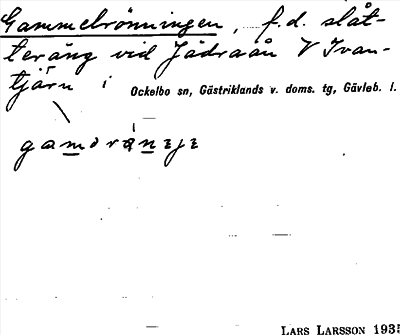 Gammelrönningen, f.d. slåt-
teräng vid Jädraån V Ivan-
tjärn i Ockelbo sn, Gästriklands v. doms. tg, Gävleb. l.
LARS LARSSON 1935